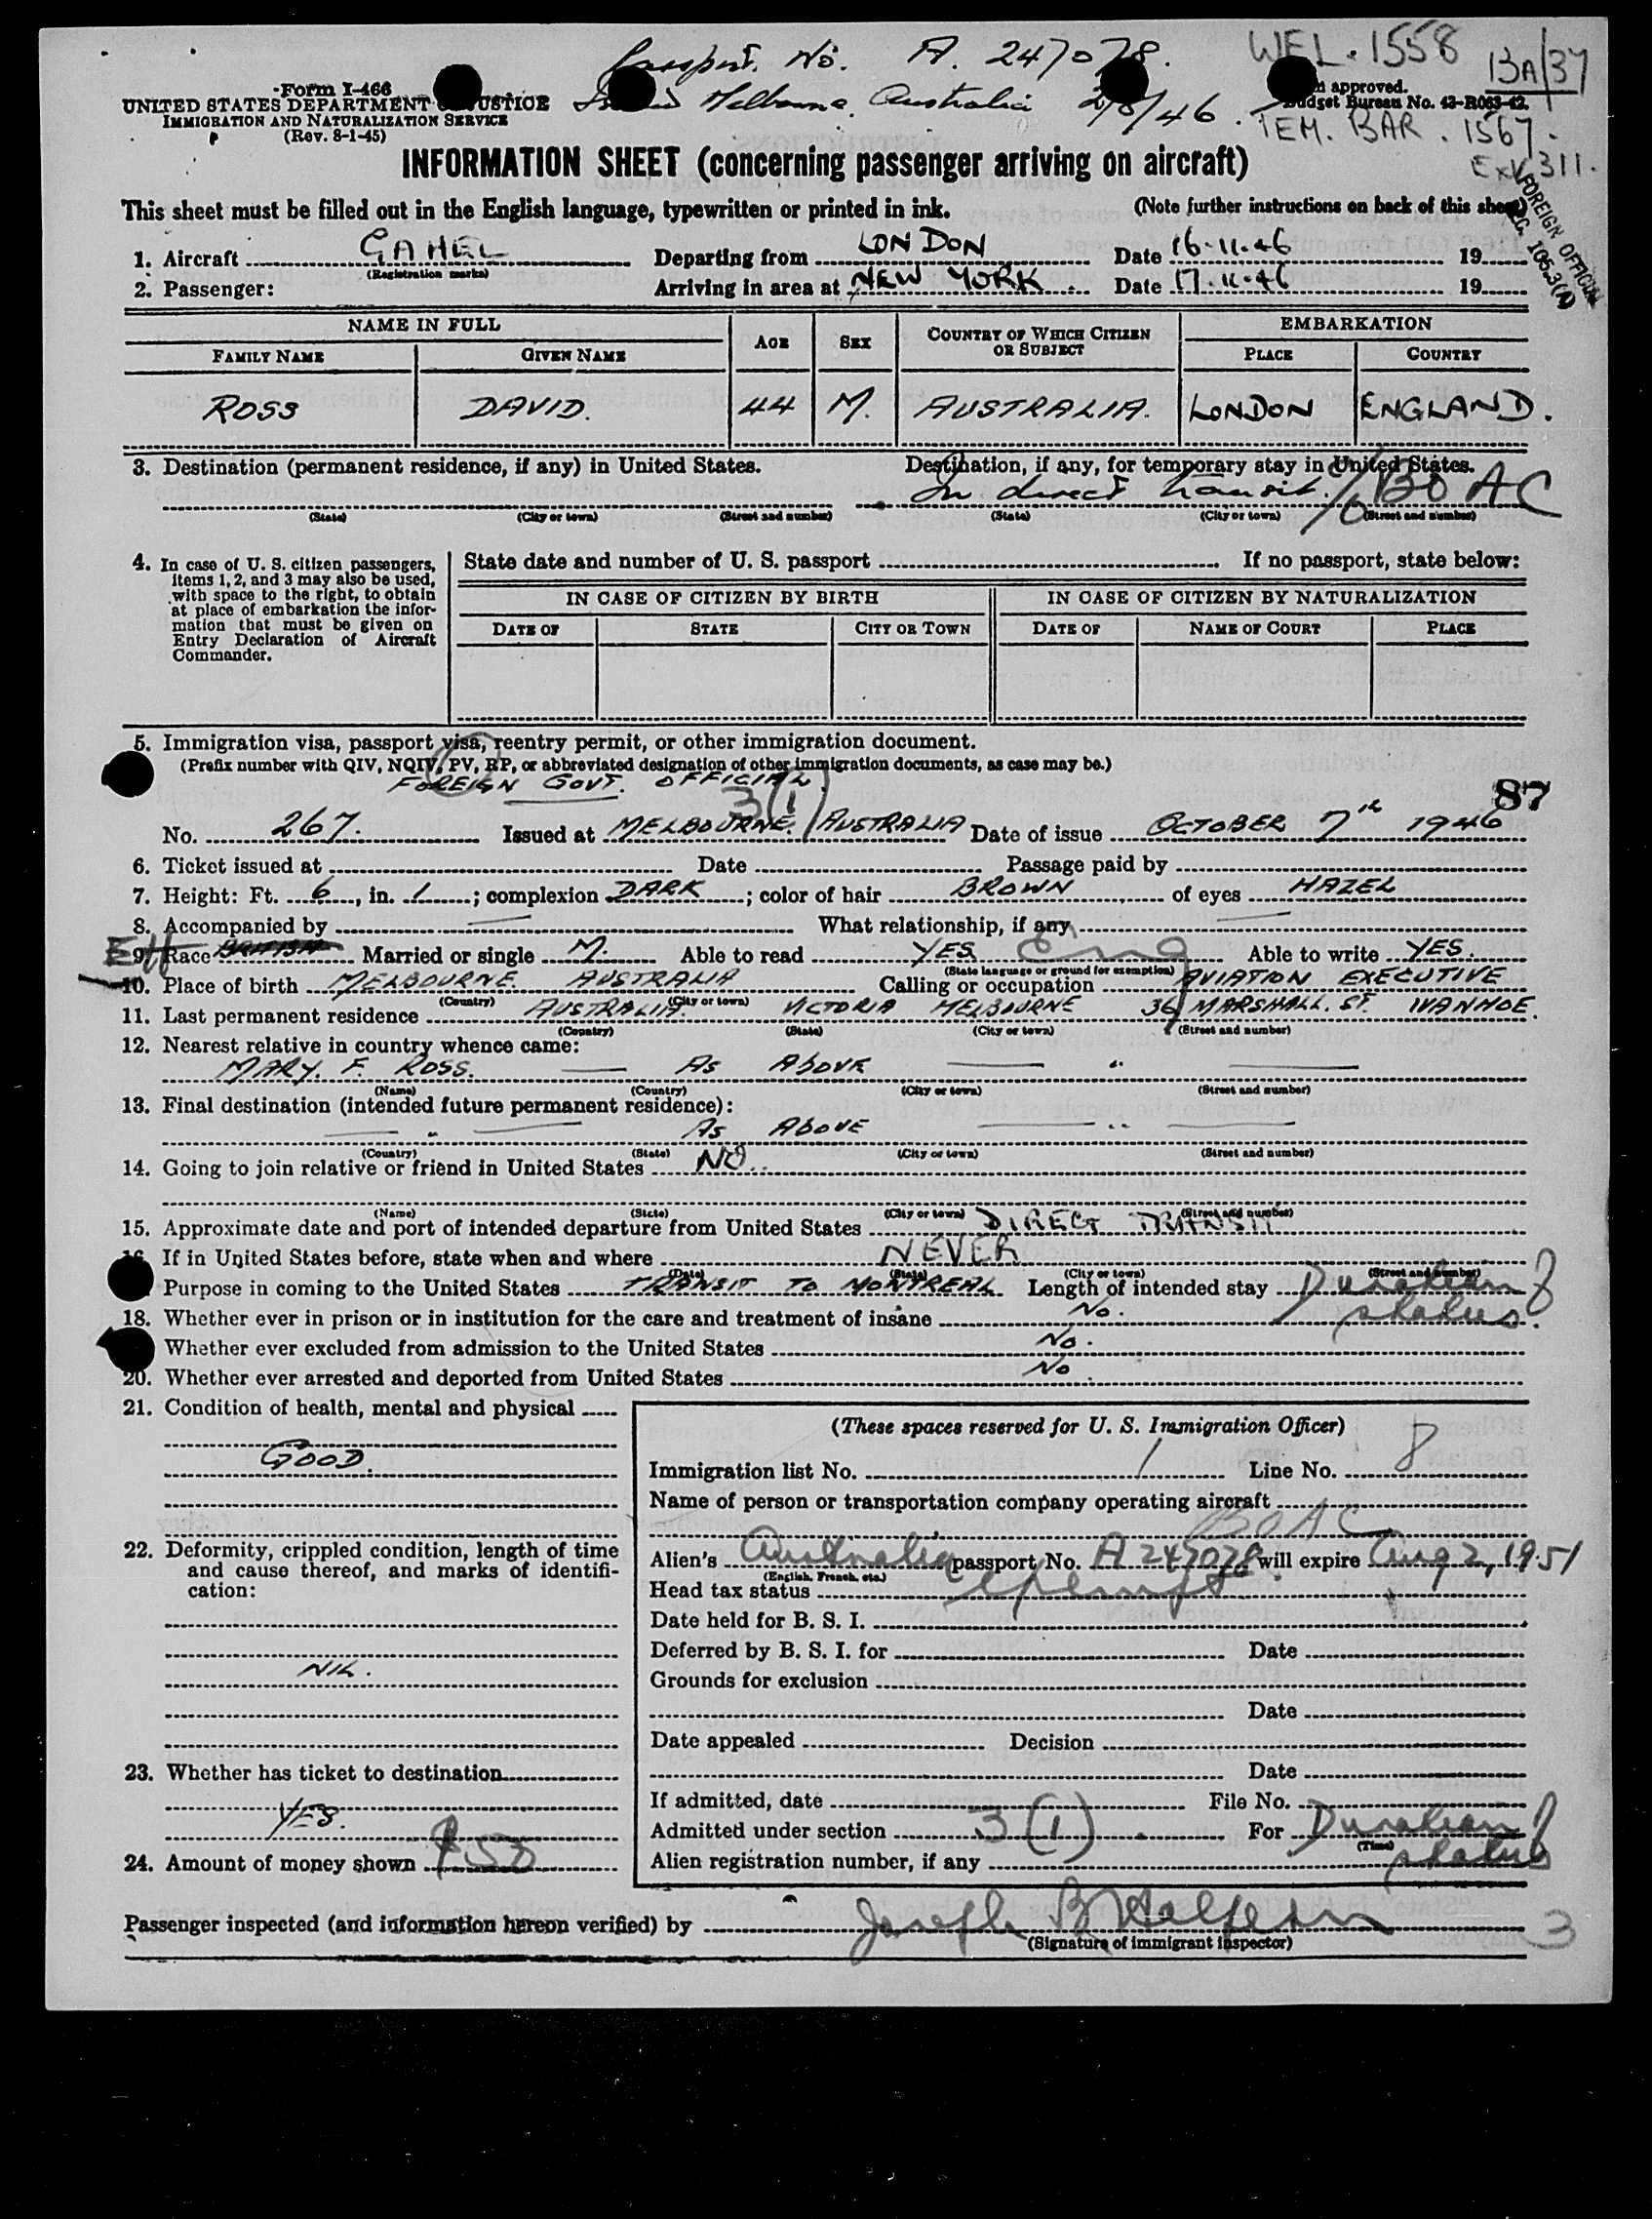 Passport. No. A. 247078. WEL. 1558 BA/37
Form I-466
UNITED STATES DEPARTMENT JUSTICE Melbourne, Australia 2/8/46. approved.
IMMIGRATION AND NATURALIZATION SERVICE Budget Bureau No. 43-R063-42.
(Rev. 8-1-45) TEM. BAR. 1567.
INFORMATION SHEET (concerning passenger arriving on aircraft) 311.
This sheet must be filled out in the English language, typewritten or printed in ink. (Note further instructions on back of this sheet)
FOREIGN OFFICIAL
1. Aircraft GAHEL Departing from LONDON Date 16-11-46 19
(Registration marks)
2. Passenger: Arriving in area at NEW YORK. Date 17.11.46 19
NAME IN FULL AGE SEX COUNTRY OF WHICH CITIZEN OR SUBJECT EMBARKATION
FAMILY NAME GIVEN NAME PLACE COUNTRY
ROSS DAVID. 44 M. AUSTRALIA. LONDON ENGLAND.
3. Destination (permanent residence, if any) in United States. Destination, if any, for temporary stay in United States.
In direct transit. c/o BOAC
(State) (City or town) (Street and number) (State) (City or town) (Street and number)
4. In case of U. S. citizen passengers, items 1, 2, and 3 may also be used, with space to the right, to obtain at place of embarkation the information that must be given on Entry Declaration of Aircraft Commander.
State date and number of U. S. passport If no passport, state below:
IN CASE OF CITIZEN BY BIRTH IN CASE OF CITIZEN BY NATURALIZATION
DATE OF STATE CITY OR TOWN DATE OF NAME OF COURT PLACE
5. Immigration visa, passport visa, reentry permit, or other immigration document.
(Prefix number with QIV, NQIV, PV, RP, or abbreviated designation of other immigration documents, as case may be.)
FOREIGN GOVT. OFFICIAL. 87
3(1)
No. 267. Issued at MELBOURNE. AUSTRALIA Date of issue OCTOBER 7th 1946
6. Ticket issued at Date Passage paid by
7. Height: Ft. 6, in. 1; complexion DARK; color of hair BROWN, of eyes HAZEL
8. Accompanied by — What relationship, if any —
9. Race BRITISH Married or single M. Able to read YES Eng Able to write YES.
(State language or ground for exemption)
10. Place of birth MELBOURNE. AUSTRALIA Calling or occupation AVIATION EXECUTIVE
(Country) (City or town)
11. Last permanent residence AUSTRALIA. VICTORIA MELBOURNE 36 MARSHALL. ST. IVANHOE.
(Country) (State) (City or town) (Street and number)
12. Nearest relative in country whence came:
MARY. F. ROSS. — AS ABOVE — " —
(Name) (Country) (City or town) (Street and number)
13. Final destination (intended future permanent residence):
— " — AS ABOVE — " —
(Country) (State) (City or town) (Street and number)
14. Going to join relative or friend in United States NO.
(Name) (State) (City or town) (Street and number)
15. Approximate date and port of intended departure from United States DIRECT TRANSIT
16. If in United States before, state when and where NEVER
(Date) (State) (City or town) (Street and number)
Purpose in coming to the United States TRANSIT TO MONTREAL Length of intended stay Duration of status.
18. Whether ever in prison or in institution for the care and treatment of insane No.
Whether ever excluded from admission to the United States No.
20. Whether ever arrested and deported from United States No.
21. Condition of health, mental and physical
GOOD.
22. Deformity, crippled condition, length of time and cause thereof, and marks of identification:
NIL.
23. Whether has ticket to destination
YES.
24. Amount of money shown $50
(These spaces reserved for U. S. Immigration Officer)
Immigration list No. 1 Line No. 8
Name of person or transportation company operating aircraft
BOAC
Alien's Australia passport No. A247078 will expire Aug 2, 1951
(English, French, etc.)
Head tax status exempt
Date held for B. S. I.
Deferred by B. S. I. for Date
Grounds for exclusion
Date
Date appealed Decision
Date
If admitted, date File No.
Admitted under section 3(1) For Duration of status
(Time)
Alien registration number, if any
Passenger inspected (and information hereon verified) by Joseph B Halpern 3
(Signature of immigrant inspector)